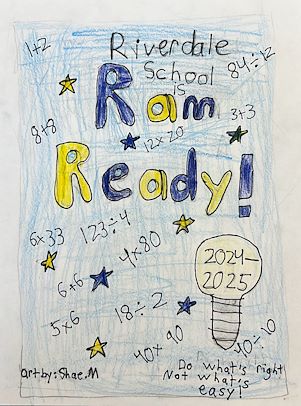 1+2
Riverdale
School
is
84÷12
Ram
3+3
8+8
12x20
Ready!
6x33
123÷4
4x80
2024-
2025
6+6
18÷2
5x6
40x90
40÷10
Do what's right
Not what's
easy!
art by: Shae.M